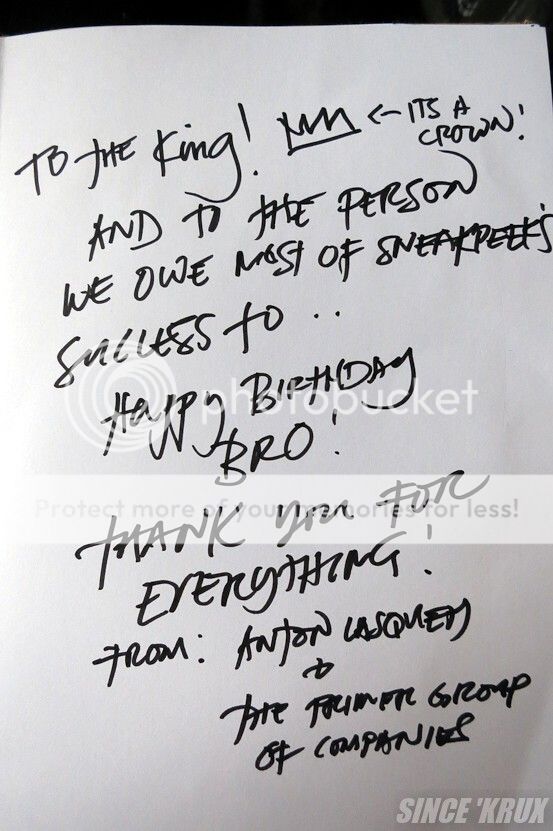 TO THE King! ← ITS A CROWN!
AND TO THE PERSON
WE OWE MOST OF SNEAKPEEK'S
SUCCESS TO ..
HAppy BIRTHDAY
BRO!
THANK YOU FOR
EVERYTHING!
FROM: ANTON
&
THE PRIMER GROUP
OF COMPANIES
photobucket
Protect more of your memories for less!
SINCE 'KRUX